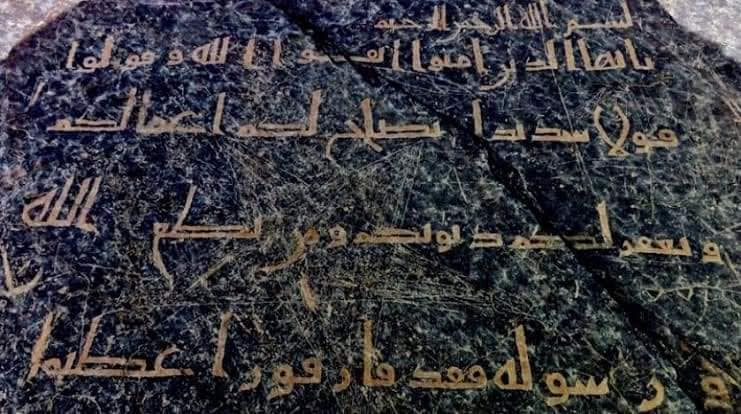 بسم الله الرحمن الرحيم
يايها الذين امنوا اتقوا الله وقولوا
قولا سديدا يصلح لكم اعمالكم
ويغفر لكم ذنوبكم ومن يطع الله
ورسوله فقد فاز فوزا عظيما